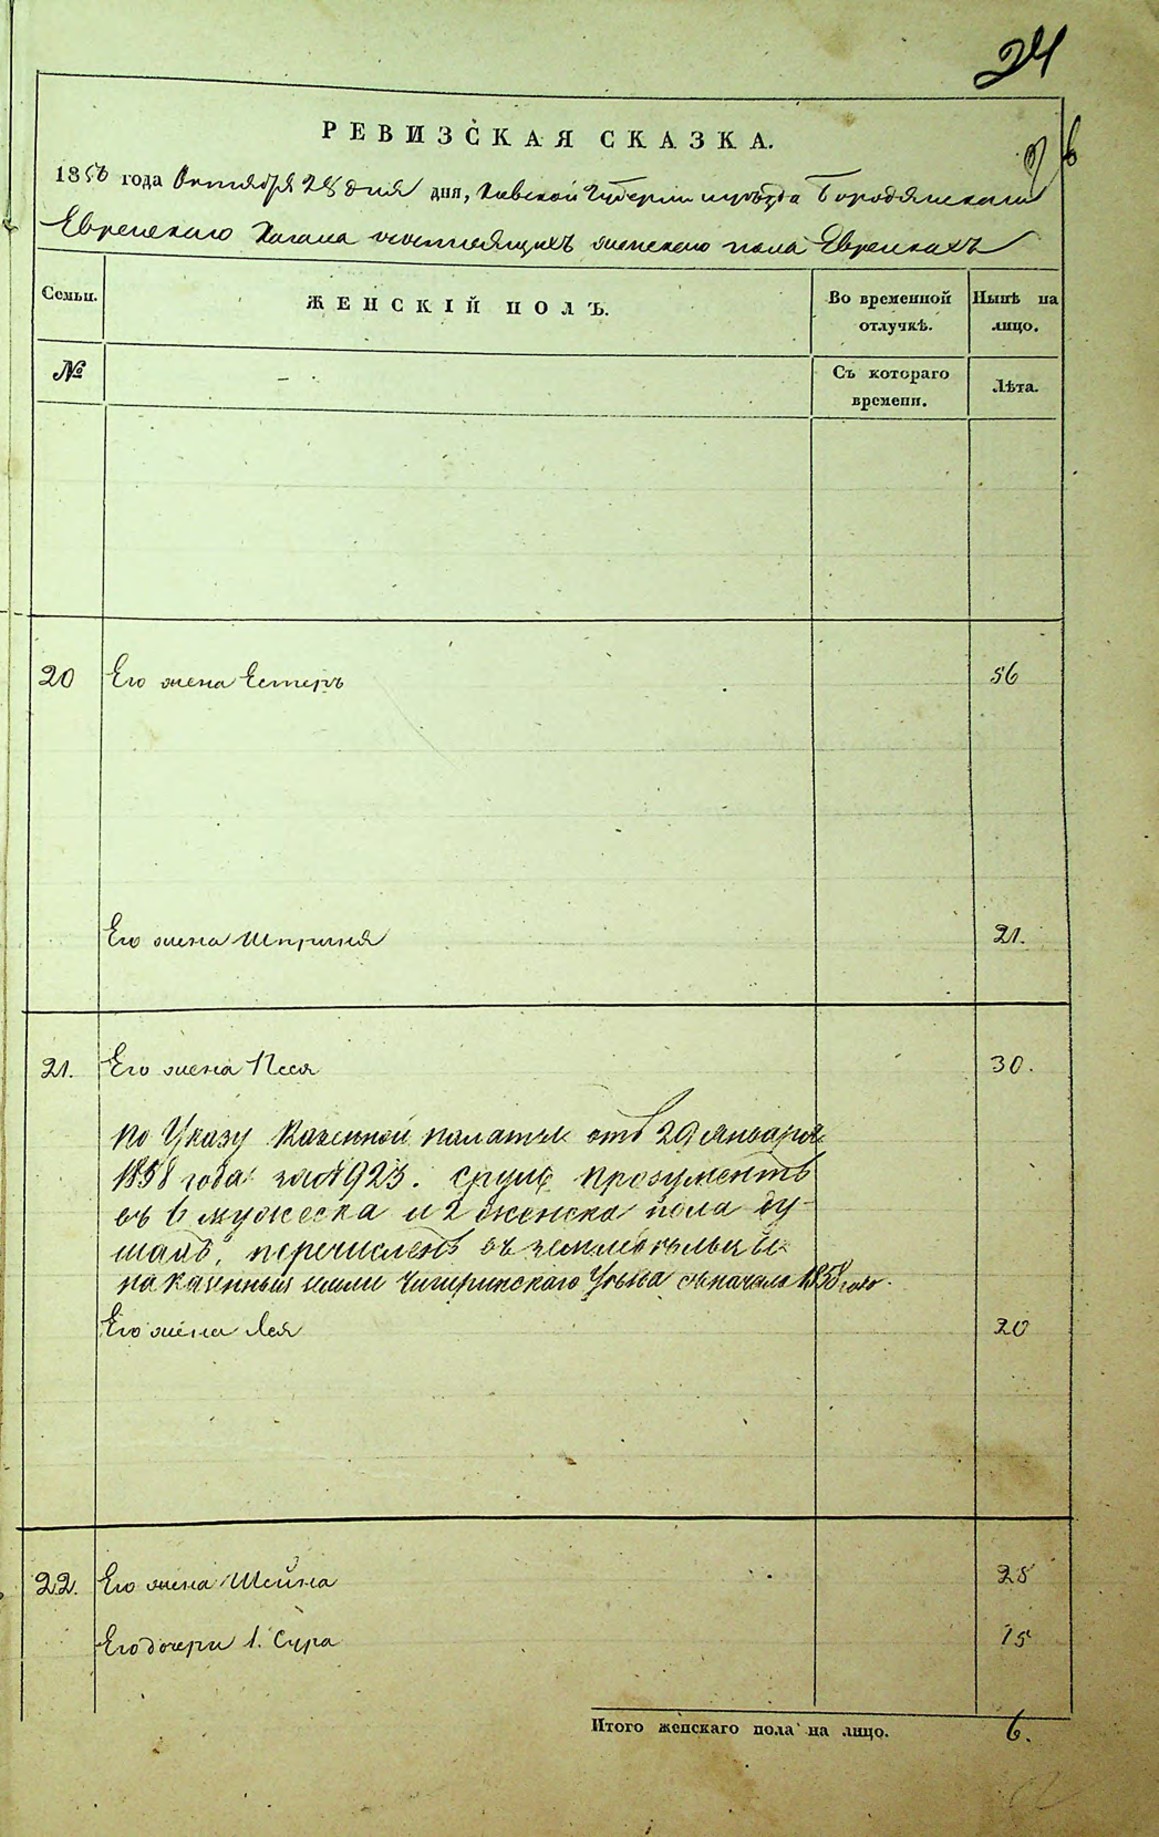 24
РЕВИЗСКАЯ СКАЗКА.
1850 года Октября 28 дня дня, Киевской Губернии и уѣзда Бородянского
Еврейского Кагала о состоящихъ женского пола Еврейкахъ
Семьи. ЖЕНСКІЙ ПОЛЪ. Во временной отлучкѣ. Нынѣ на лицо.
№ Съ котораго времени. Лѣта.
20 Его жена Естеръ 56
Его жена Шпринця 21.
21. Его жена Песя 30.
По Указу Казенной палаты отъ 29 Января
1858 года за № 923. Сруль Прозументъ
въ 6 мужеска и 2 женска пола ду-
шахъ, перечисленъ въ земледѣльцы
на казенныя земли Чигиринскаго Уѣзда съ начала 1858 года.
Его жена Лея 20
22. Его жена Шейна 25
Его дочери 1. Сура 15
Итого женскаго пола на лицо. 6.